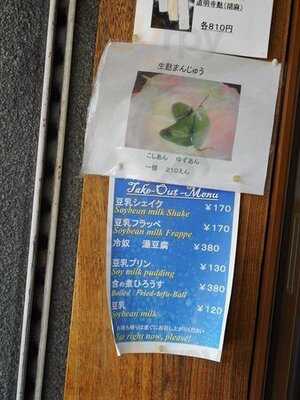 道明寺麩(胡麻)
各810円
生麩まんじゅう
こしあん　ゆずあん
一個　210えん
Take-Out-Menu
豆乳シェイク ¥170
Soybean milk Shake
豆乳フラッペ ¥170
Soybean milk Frappe
冷奴　湯豆腐 ¥380
豆乳プリン ¥130
Soy milk pudding
含め煮ひろうす ¥380
Boiled :Fried-tofu-Ball
豆乳 ¥120
Soybean milk
お持ち帰りは直ぐにお召し上がりください
Eat right now, please!